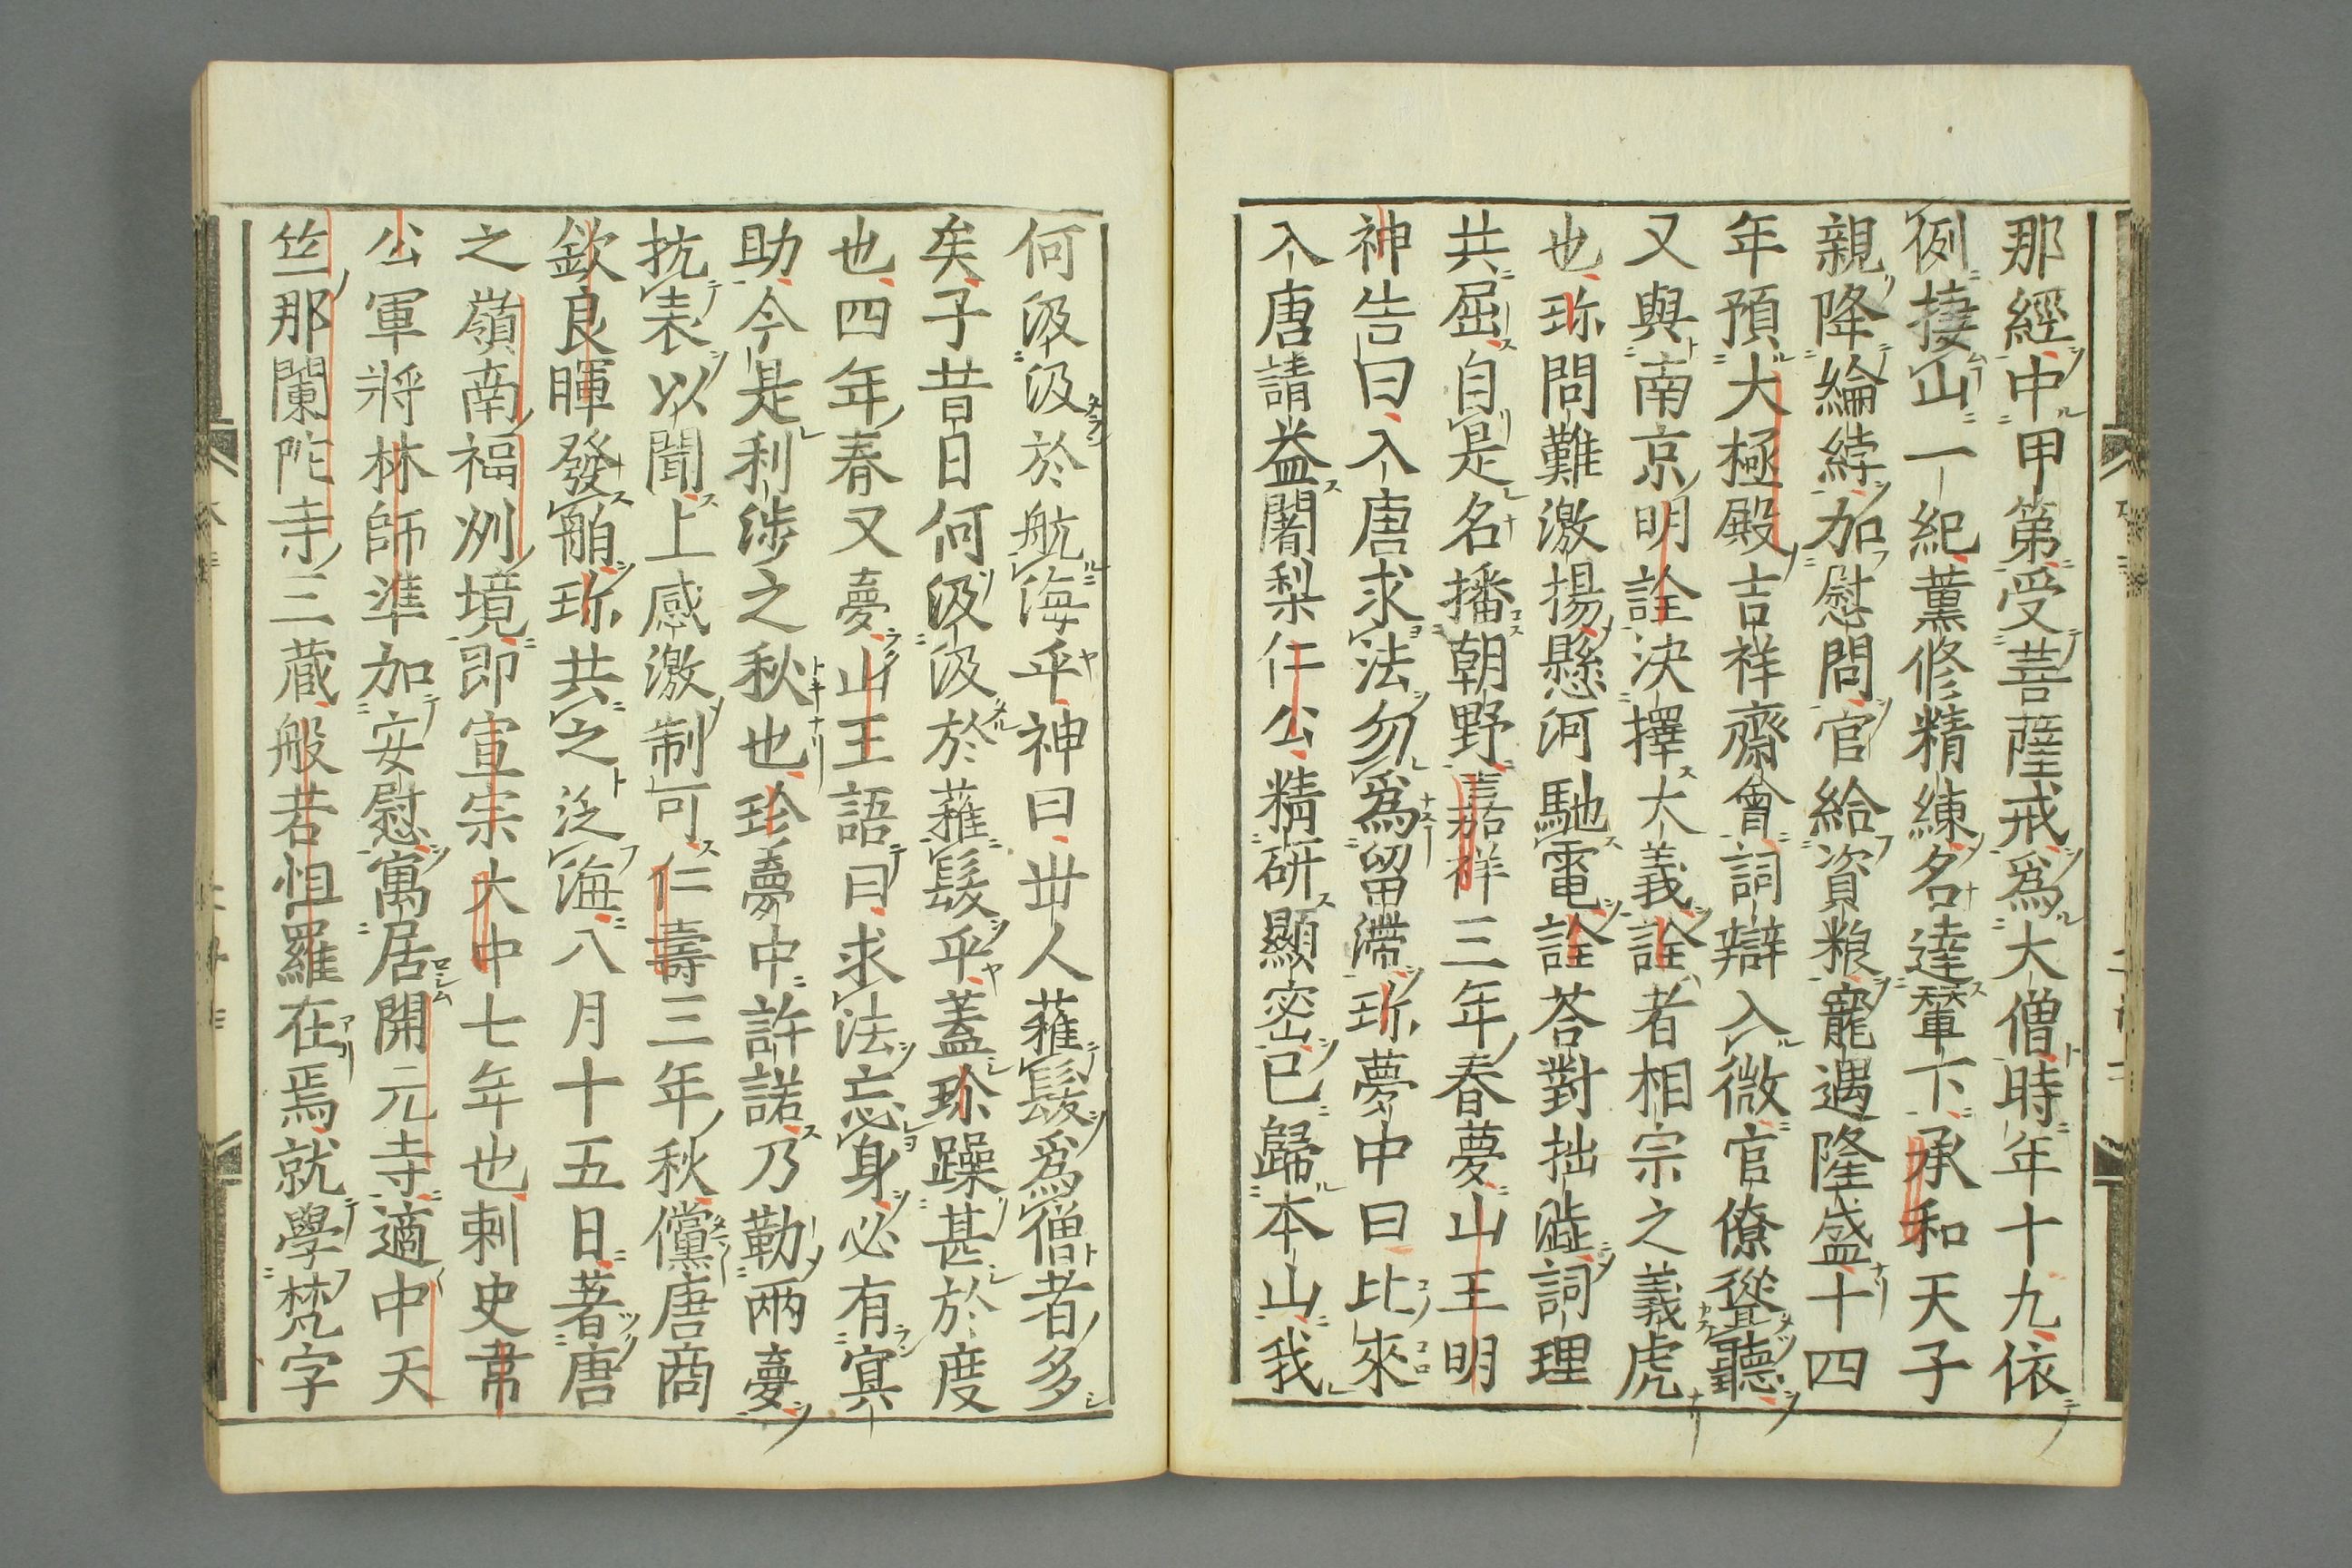 那經中甲第受菩薩戒爲大僧時年十九依
例棲山一紀薫修精練名達輦下承和天子
親降綸綍加慰問官給資粮寵遇隆盛十四
年預大極殿吉祥齋會詞辯入微官僚聳聽
又與南京明詮決擇大義詮者相宗之義虎
也珎問難激揚懸河馳電詮荅對拙澁詞理
共屈自是名播朝野嘉祥三年春夢山王明
神告曰入唐求法勿爲留滯珎夢中曰比來
入唐請益闍梨仁公精研顯密已歸本山我
何汲汲於航海乎神曰丗人薙髮爲僧者多
矣子昔日何汲汲於薙髮乎蓋珎躁甚於度
也四年春又夢山王語曰求法忘身必有冥
助今是利涉之秋也珍夢中許諾乃勒兩夢
抗表以聞上感激制可仁壽三年秋儻唐商
欽良暉發舶珎共之泛海八月十五日著唐
之嶺南福州境即宣宗大中七年也刺史韋
公軍將林師準加安慰寓居開元寺適中天
竺那闌陀寺三藏般若怛羅在焉就學梵字